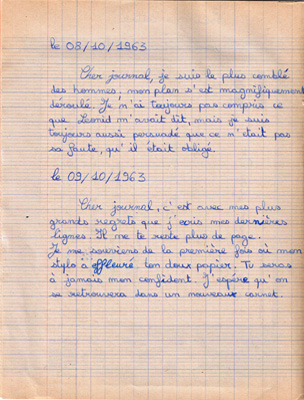 le 08/10/1963
Cher journal, je suis le plus comblé
des hommes, mon plan s'est magnifiquement
déroulé. Je n'ai toujours pas compris ce
que Leonid m'avait dit, mais je suis
toujours aussi persuadé que ce n'était pas
sa faute, qu'il était obligé.
le 09/10/1963
Cher journal, c'est avec mes plus
grands regrets que j'écris mes dernières
lignes. Il me te reste plus de page.
Je me souviens de la première fois où mon
stylo à effleuré ton doux papier. Tu seras
à jamais mon confident. J'espère qu'on
se retrouvera dans un nouveaux carnet.